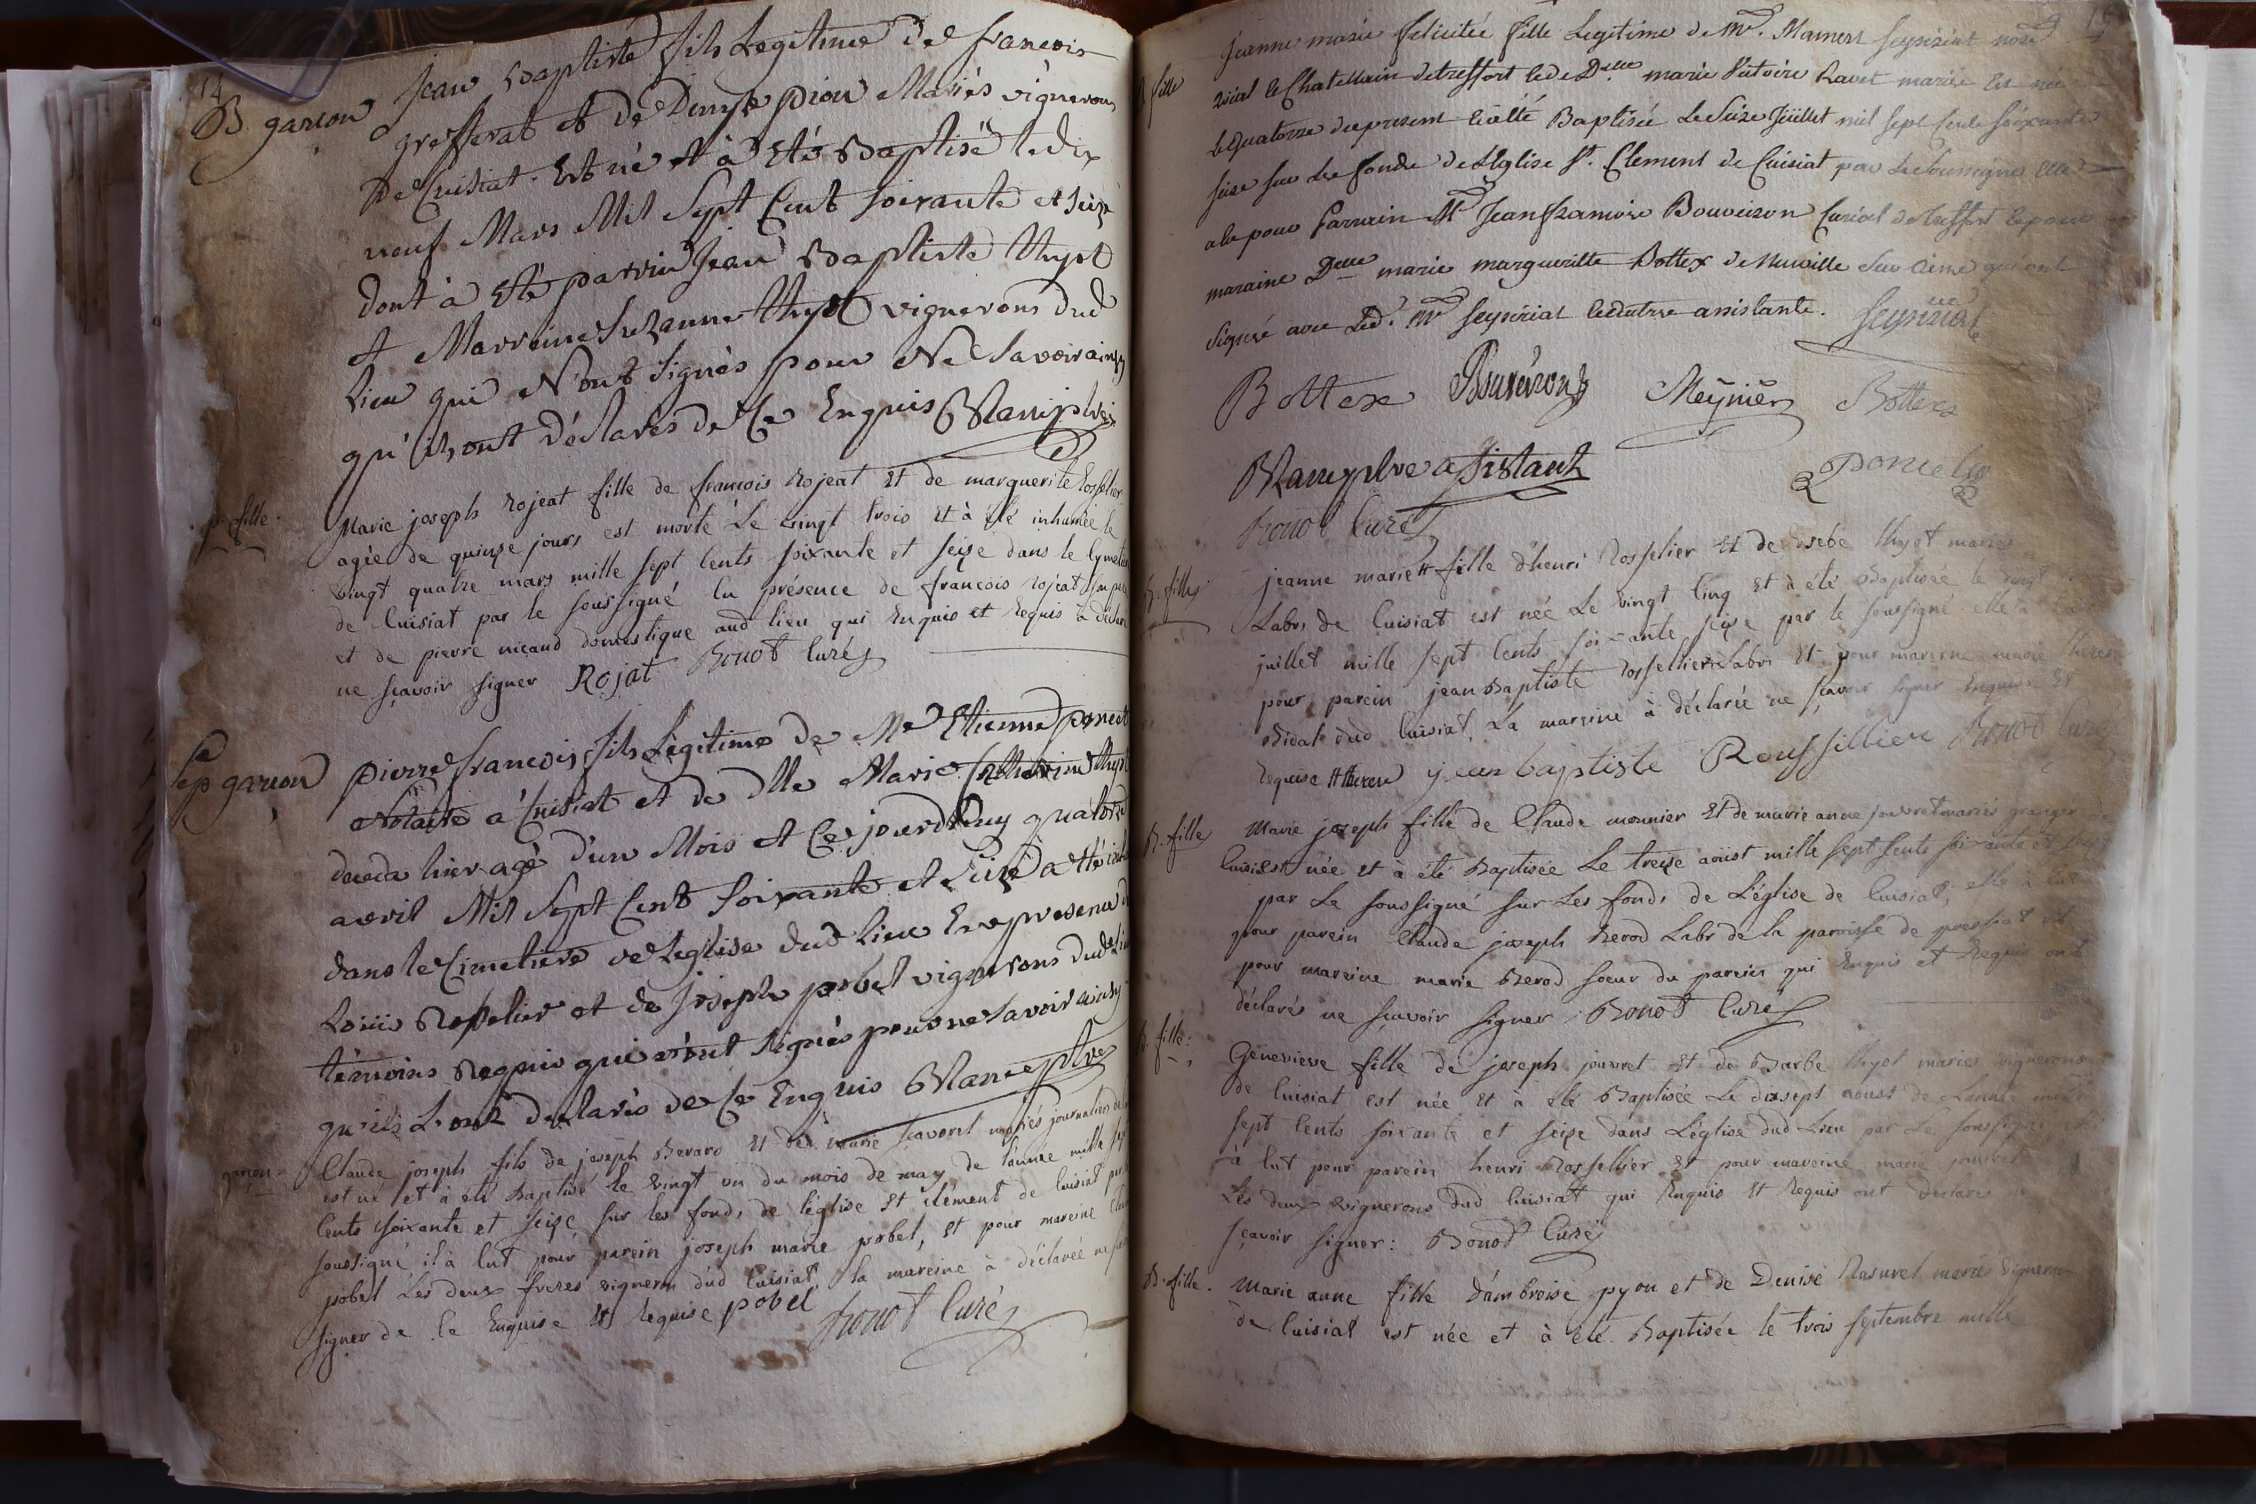 14
B. garcon
Jean Baptiste fils Legitime de francois
grosserat et de Denise piou Mariés vignerons
De Cuisiat. Est né et à Eté Baptisé le dix
neuf Mars Mil Sept Cent soixante et seize
Dont à Eté parrin Jean Baptiste thyot
et Marreine Suzanne thyot vignerons dud
Lieu qui N'ont signés pour Ne savoir ainsy
qu'ils ont déclarés de Ce Enquis
p. fille
Marie joseph rojeat fille de francois Rojeat et de marguerite
agée de quinze jours est morte Le vingt trois et à été inhumée le
vingt quatre mars mille sept cents soixante et seize dans le
de Cuisiat par le soussigné en présence de francois rojeat
et de pierre nicaud domestique aud lieu qui Enquis et Requis à
ne sçavoir signer Rojat Bonot Curé
Sep garcon
pierre francois fils Légitime de Me Etienne poncet
Notaire à Cuisiat et de dlle Marie
hier agé d'un Mois et Cejourd'huy quatorze
avril Mil Sept Cent Soixante et Seize a été
dans le Cimetiere de Leglise dud Lieu En presence
Louis Rosselier et de Joseph pobel vignerons dud
témoins Requis qui n'ont signés pour ne savoir ainsy
qu'ils L'ont declarés de Ce Enquis
garçon
Claude joseph fils de joseph Berard et de marie mariés journaliers
est né et à été Baptisé le vingt un du mois de may de l'année mille sept
Cents soixante et seize sur les fonds de l'église St clement de Cuisiat par
soussigné il à Eut pour parein joseph marie pobel, et pour mareine
pobel Les deux freres vignerons dud Cuisiat, la mareine à déclarée ne
signer de Ce Enquise et Requise pobel Bonot Curé
B fille
Jeanne marie felicitée fille Legitime de Mr. Mamert
le Chatellain detreffort et de Delle marie Ravet mariés est née
le quatorze du present et à été Baptisée Le Seize Juillet mil sept Cents soixante
seize sur Les fonds de L'Eglise St. Clement de Cuisiat par Le soussigné elle
a eu pour Parrain Mr Jean francois Bouveiron Curial de treffort et pour
maraine Delle marie margueritte Bottex de
signé avec Led. Mr et autres assistants.
Bottex Meynier Bottex
assistant
Bonot Curé
B. fille
jeanne marie fille d'henri Rosselier et de thyot mariés
Labrs de Cuisiat est née Le vingt Cinq et à été Baptisée le vingt
juillet mille sept Cents soixante seize par le soussigné. elle à
pour parein jean Baptiste Rossellier Labr et pour mareine marie
dud Cuisiat. La mareine à déclarée ne sçavoir signer Enquise et
Requise jean baptiste Roussillier Bonot Curé
B. fille
Marie joseph fille de Claude monnier et de marie anne mariés granger
Cuisiat née et à été Baptisée Le treize août mille sept Cents soixante et seize
par Le soussigné sur Les fonds de L'église de Cuisiat, elle à Eut
pour parein Claude joseph Berod Labr de la paroisse de pressiat et
pour mareine marie Berod soeur du parein qui Enquis et Requis ont
déclarés ne sçavoir signer Bonot Curé
B. fille:
Genevieve fille de joseph jouvret et de Barbe thyot mariés vignerons
de Cuisiat est née et à été Baptisée Le dixsept aoust de L'année mille
sept Cents soixante et seize dans L'église dud Lieu par Le soussigné
à Eut pour parein henri Rossellier et pour mareine marie jouvret
Les deux vignerons dud Cuisiat qui Enquis et Requis ont déclarés
sçavoir signer: Bonot Curé
B. fille.
Marie anne fille d'ambroise pyon et de Denise mariés vignerons
de Cuisiat est née et à été Baptisée le trois septembre mille